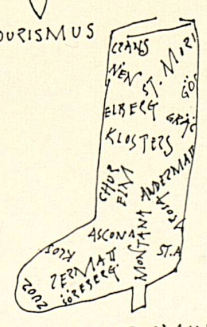 OURISMUS
CRANS
ST. MORI
NEN
GÖS
ELBERG
GRÄC
KLOSTERS
ANDERMATT
CHUR
ELM
AROSA
ASCONA
MONTANA
ST.A
KLOS
ZERMATT
ÖRESERG
ZUOZ